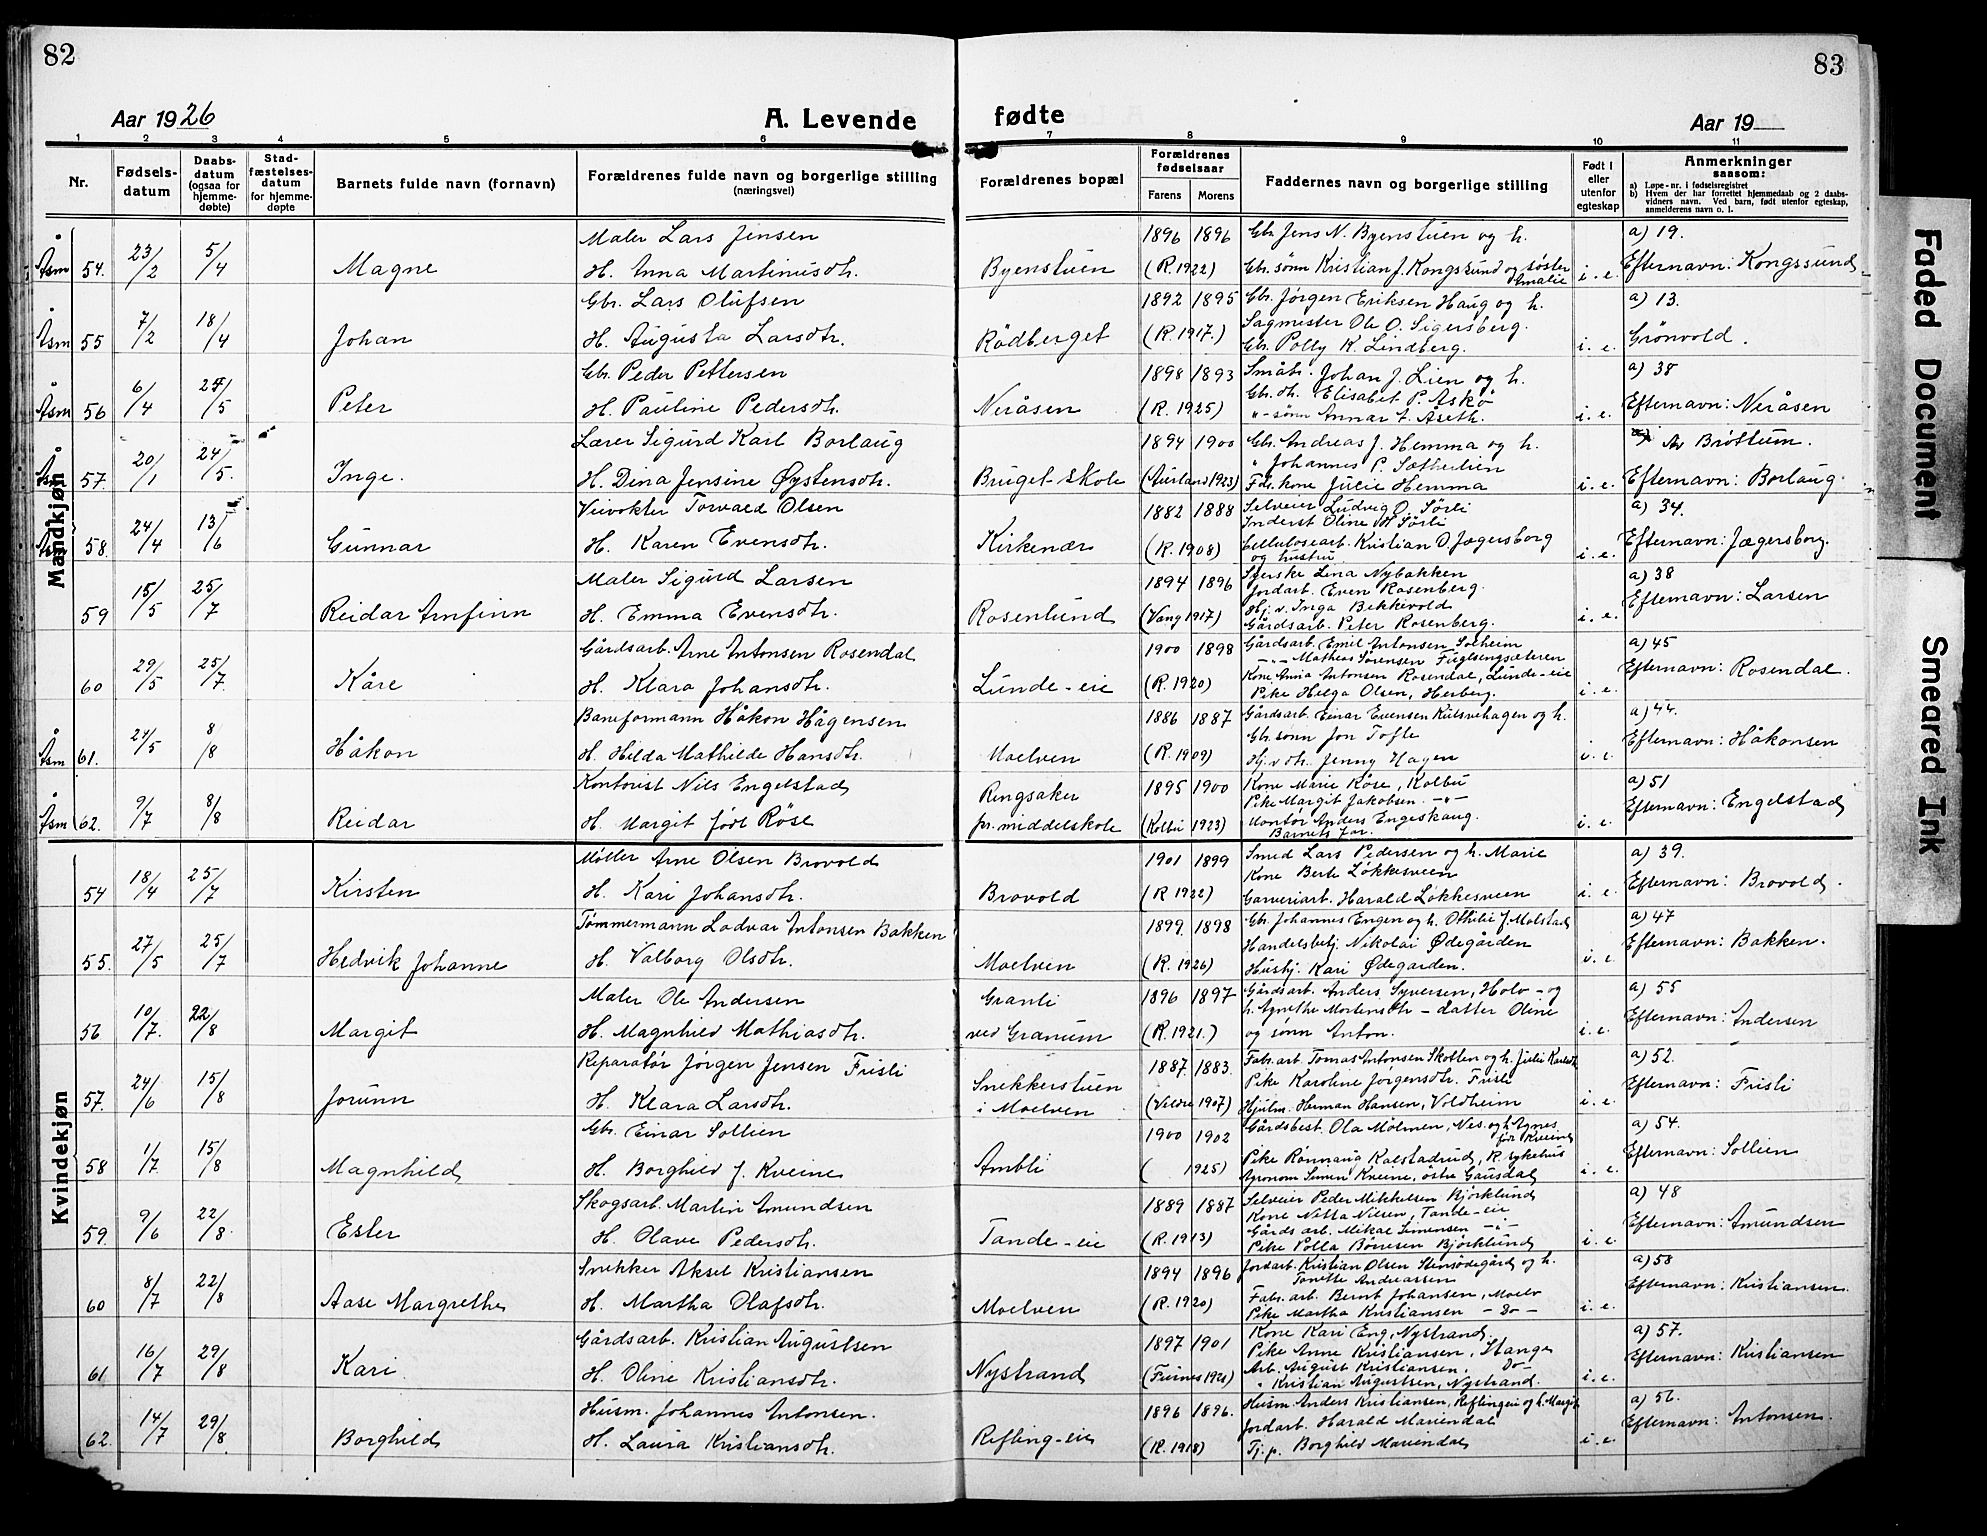 82
83
Aar 1926
A. Levende
fødte
Aar 19
1 2 3 4 5 6 7 8 9 10 11
Nr.
Fødsels-
datum
Daabs-
datum
(ogsaa for
hjemme-
døbte)
Stad-
fæstelses-
datum
for hjemme-
døpte
Barnets fulde navn (fornavn)
Forældrenes fulde navn og borgerlige stilling
(næringsvei)
Forældrenes bopæl
Forældrenes
fødselsaar
Farens
Morens
Faddernes navn og borgerlige stilling
Født i
eller
utenfor
egteskap
Anmerkninger
saasom:
a) Løpe-nr. i fødselsregistret
b) Hvem der har forrettet hjemmedaab og 2 daabs-
vidners navn. Ved barn, født utenfor egteskap,
anmelderens navn o. l.
Mandkjøn
Maler Lars Jensen 1896 1896 Gbr. Jens N. Byenstuen og h. a) 19.
Åsm 54. 23/2 5/4 Magne H. Anna Martinusdtr. Byenstuen (R. 1922) Gbr. sønn Kristian J. Kongssund og søster Amalie i. e. Efternavn: Kongssund
Gbr. Lars Olufsen 1892 1895 Gbr. Jørgen Eriksen Haug og h. a) 13.
Åsm 55 7/2 18/4 Johan H. Augusta Larsdtr. Rödberget (R. 1917.) Sagmester Ole O. Sigersberg. Gbr. Polly K. Lindberg. i. e. Grönvold.
Gbr. Peder Pettersen 1898 1893 Småbr. Johan J. Lien og h. a) 38
Åsm 56 6/4 24/5 Peter H. Pauline Pedersdtr. Neråsen (R. 1925) Gbr. dtr. Elisabet P. Askø "-sønn Annar A. Åseth. i. e. Efternavn: Neråsen
Lærer Sigurd Karl Borlaug 1894 1900 Gbr. Andreas J. Hemma og h. Brøttum.
Åsm 57. 20/1 24/5. Inge. H. Dina Jensine Øystensdtr. Bruget skole (Aurland 1923) " Johannes P. Sætherlien Fdr. kone Julie Hemma i. e. Efternavn: Borlaug
Veivokter Torvald Olsen 1882 1888 Selveier Ludvig O. Sörli a) 34.
58. 24/4 13/6 Gunnar H. Karen Evensdtr. Kirkenær (R. 1908) Inderst Oline H Sörli Cellulosearb. Kristian O. Jægersborg og hustru i. e. Efternavn: Jægersborg.
Maler Sigurd Larsen 1894 1896 Syerske Lina Nybakken a) 38
59 15/5 25/7 Reidar Arnfinn H. Emma Evensdtr. Rosenlund (Vang 1917) Jordarb. Even Rosenberg. Hj. v. Inga Bekkevold Gårdsarb. Peter Rosenberg. i. e. Efternavn: Larsen
Gårdsarb. Arne Antonsen Rosendal 1900 1898 Gårdsarb. Emil Antonsen Solheim a) 45
60 29/5 25/7. Kåre H. Klara Johansdtr. Lunde-eie (R. 1920) -"- Mathias Sörensen Fuglsengsæteren Kone Anna Antonsen Rosendal, Lunde-eie Pike Helga Olsen, Herberg. i. e. Efternavn: Rosendal.
Baneformann Håkon Hågensen 1886 1887 Gårdsarb. Einar Evensen Kulsvehagen og h. a) 44.
Åsm 61. 24/5 8/8 Håkon H. Hilda Mathilde Hansdtr. Moelven (R. 1909) Gbr. sønn Jon Tofte Hj. v. dtr. Jenny Hagen i. e. Efternavn: Håkonsen
Kontorist Nils Engelstad 1895 1900 Kone Marie Röse, Kolbu a) 51
Åsm 62. 9/7 8/8 Reidar H. Margit født Röse Ringsaker pr. middelskole (Kolbu 1923) Pike Margit Jakobsen. -"- Kantor Anders Engeskaug. Barnets far. i. e. Efternavn: Engelstad
Kvindekjøn
Møller Arne Olsen Brovold 1901 1899 Smed Lars Pedersen og h. Marie a) 39.
54 18/4 25/7 Kirsten H. Kari Johansdtr. Brovold (R 1922) Kone Berte Løkkesveen Garveriarb. Harald Løkkesveen i. e. Efternavn: Brovold.
Tømmermann Lodvar Antonsen Bakken 1899. 1898 Gbr. Johannes Engen og h. Othilie f. Molstad a) 47
55. 27/5 25/7 Hedvik Johanne H. Valborg Olsdtr. Moelven (R. 1926) Handelsbetj. Nikolai Ødegården Husbj. Kari Ødegarden. i. e. Efternavn: Bakken.
Maler Ole Andersen Granli 1896 1897 Gårdsarb. Anders Syversen, Holo-og a) 55
56 10/7. 22/8 Margit H. Magnhild Mathiasdtr. ved Granum (R. 1921.) h. Agnethe Mortensdtr - datter Oline og sønn Anton. i. e. Efternavn: Andersen
Reparatør Jørgen Jensen Frisli 1887. 1883. Fabr. arb. Tomas Antonsen Skollen og h. Julie Karlsdtr a) 52.
57. 24/6 15/8 Jorunn H. Klara Larsdtr. Snekkerstuen i Moelven (Veldre 1907) Pike Karoline Jørgensdtr. Frisli Hjulm. Herman Hansen, Voldheim i. e. Efternavn: Frisli
Gbr. Einar Sollien 1900 1902 Gårdsbest. Ola Mölmen, Nes. og h. Agnes før Kveine a) 54.
58 1/7 15/8 Magnhild H. Borghild f. Kveine Ambli ( 1925) Pike Rønnaug Kalstadrud, R. sykehus Agronom Simen Kveine, östre Gausdal i. e. Efternavn: Sollien
Skogsarb. Martin Amundsen 1889 1887 Selveier Peder Mikkelsen Björklund a) 48
59. 9/6 22/8. Ester H. Olave Pedersdtr. Tande-eie (R. 1913) Kone Netta Nilsen, Tande-eie Gårds arb. Mikal Simensen -"- Pike Polla Børresen Björklund i. e. Efternavn: Amundsen
Snekker Aksel Kristiansen 1894 1896 Jordarb. Kristian Olsen Stensödegård og h. a) 58
60 8/7 22/8 Aase Margrethe H. Martha Olafsdtr. Moelven (R. 1920) Tonette Andreassen Fabr. arb. Bernt Johansen, Moelv Pike Martha Kristiansen - Do - i. e. Efternavn: Kristiansen.
Gårdsarb. Kristian Augustsen 1897 1901 Kone Kari Eng, Nystrand. a) 57.
61 16/7 29/8 Kari H. Oline Kristiansdtr. Nystrand (Furnes 1921) Pike Anne Kristiansen, Stange Arb. August Kristiansen, Do- " Kristian Augustsen, Nystrand. i. e. Efternavn: Kristiansen
Husm. Johannes Antonsen. 1896 1896. Husm Anders Kristiansen, Reflingeie og h. Margit a) 56.
62. 14/7 29/8 Borghild H. Laura Kristiansdtr. Refling-eie (R. 1918) Jordarb. Harald Mariendal Tj. p. Borghild Mariendal i. e. Efternavn: Antonsen.
Faded Document
Smeared Ink